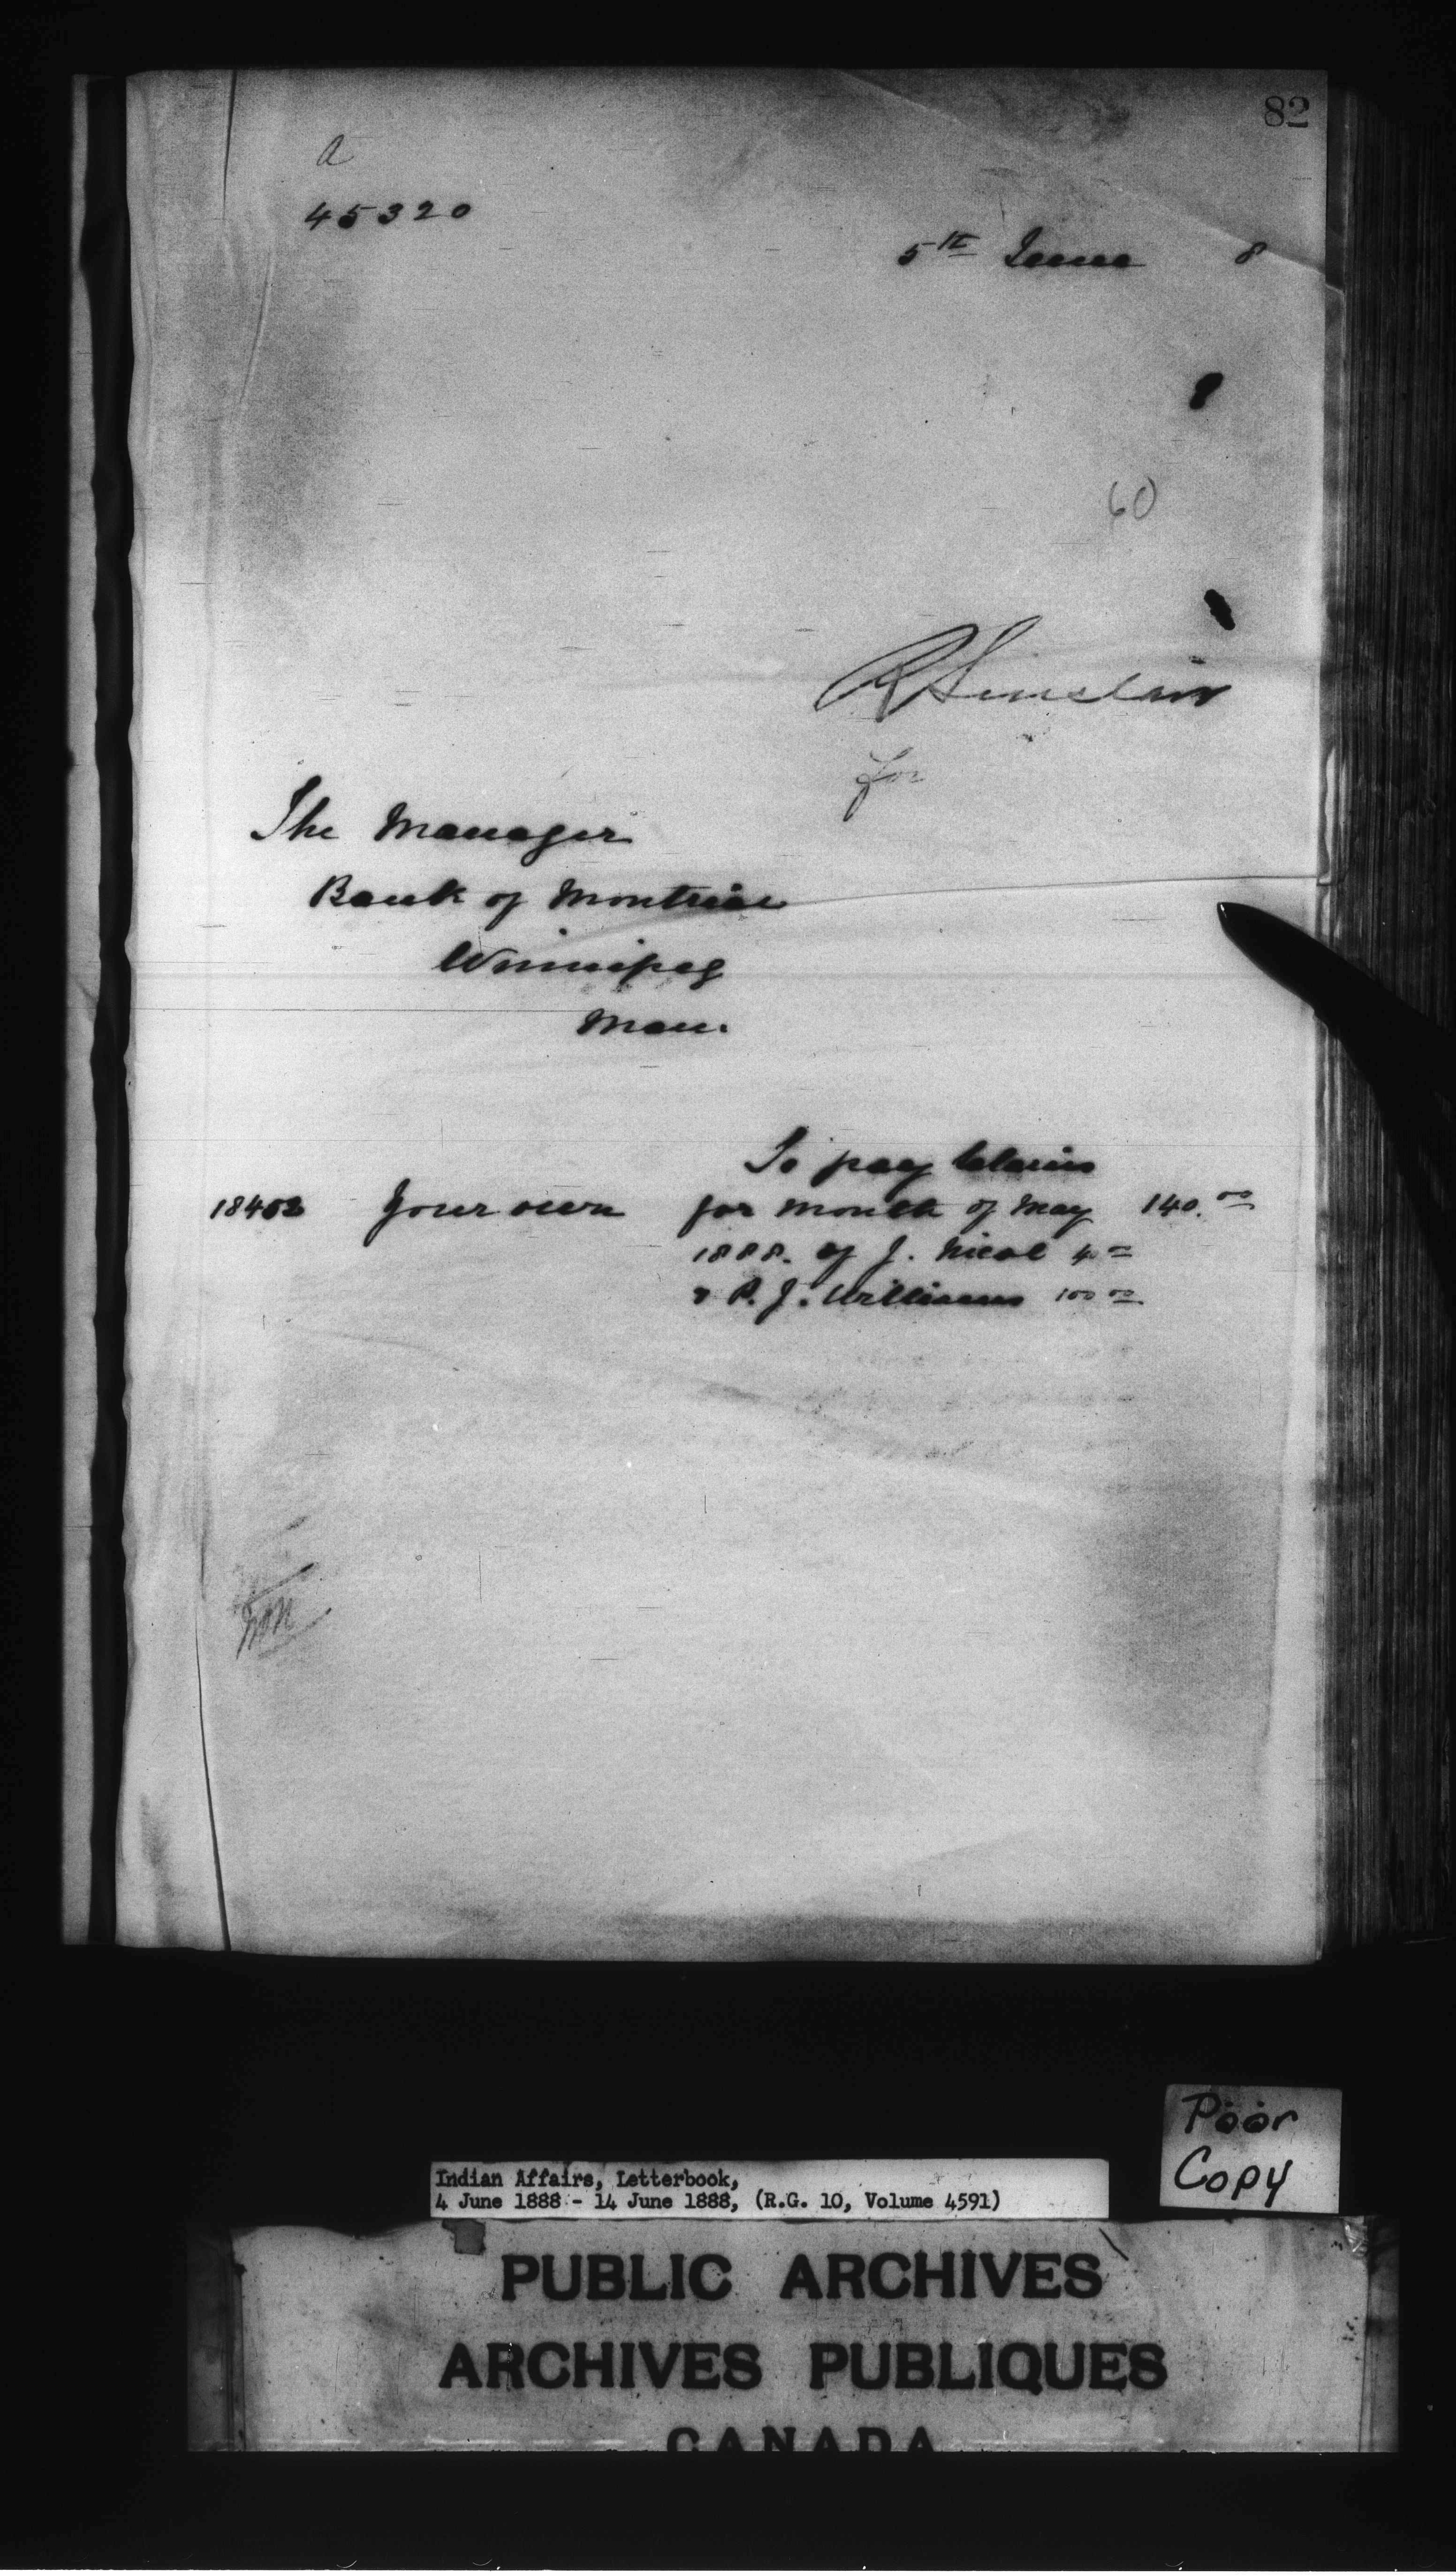 82
a
45320
5th June 8
60
R Sinclair
for
The Manager
Bank of Montreal
Winnipeg
Man.
To pay claims
18402 Your own for month of May 140.00
1888. of J. Nicol 40
& P. J. Williams 100 00
Poor
Copy
Indian Affairs, Letterbook,
4 June 1888 - 14 June 1888, (R.G. 10, Volume 4591)
PUBLIC ARCHIVES
ARCHIVES PUBLIQUES
CANADA